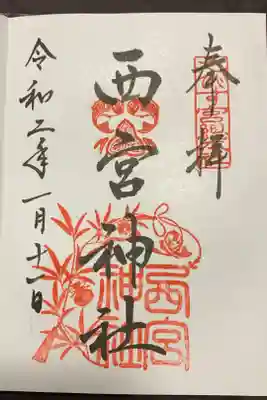 奉拝
西宮神社
西宮
神社
令和二年一月十一日